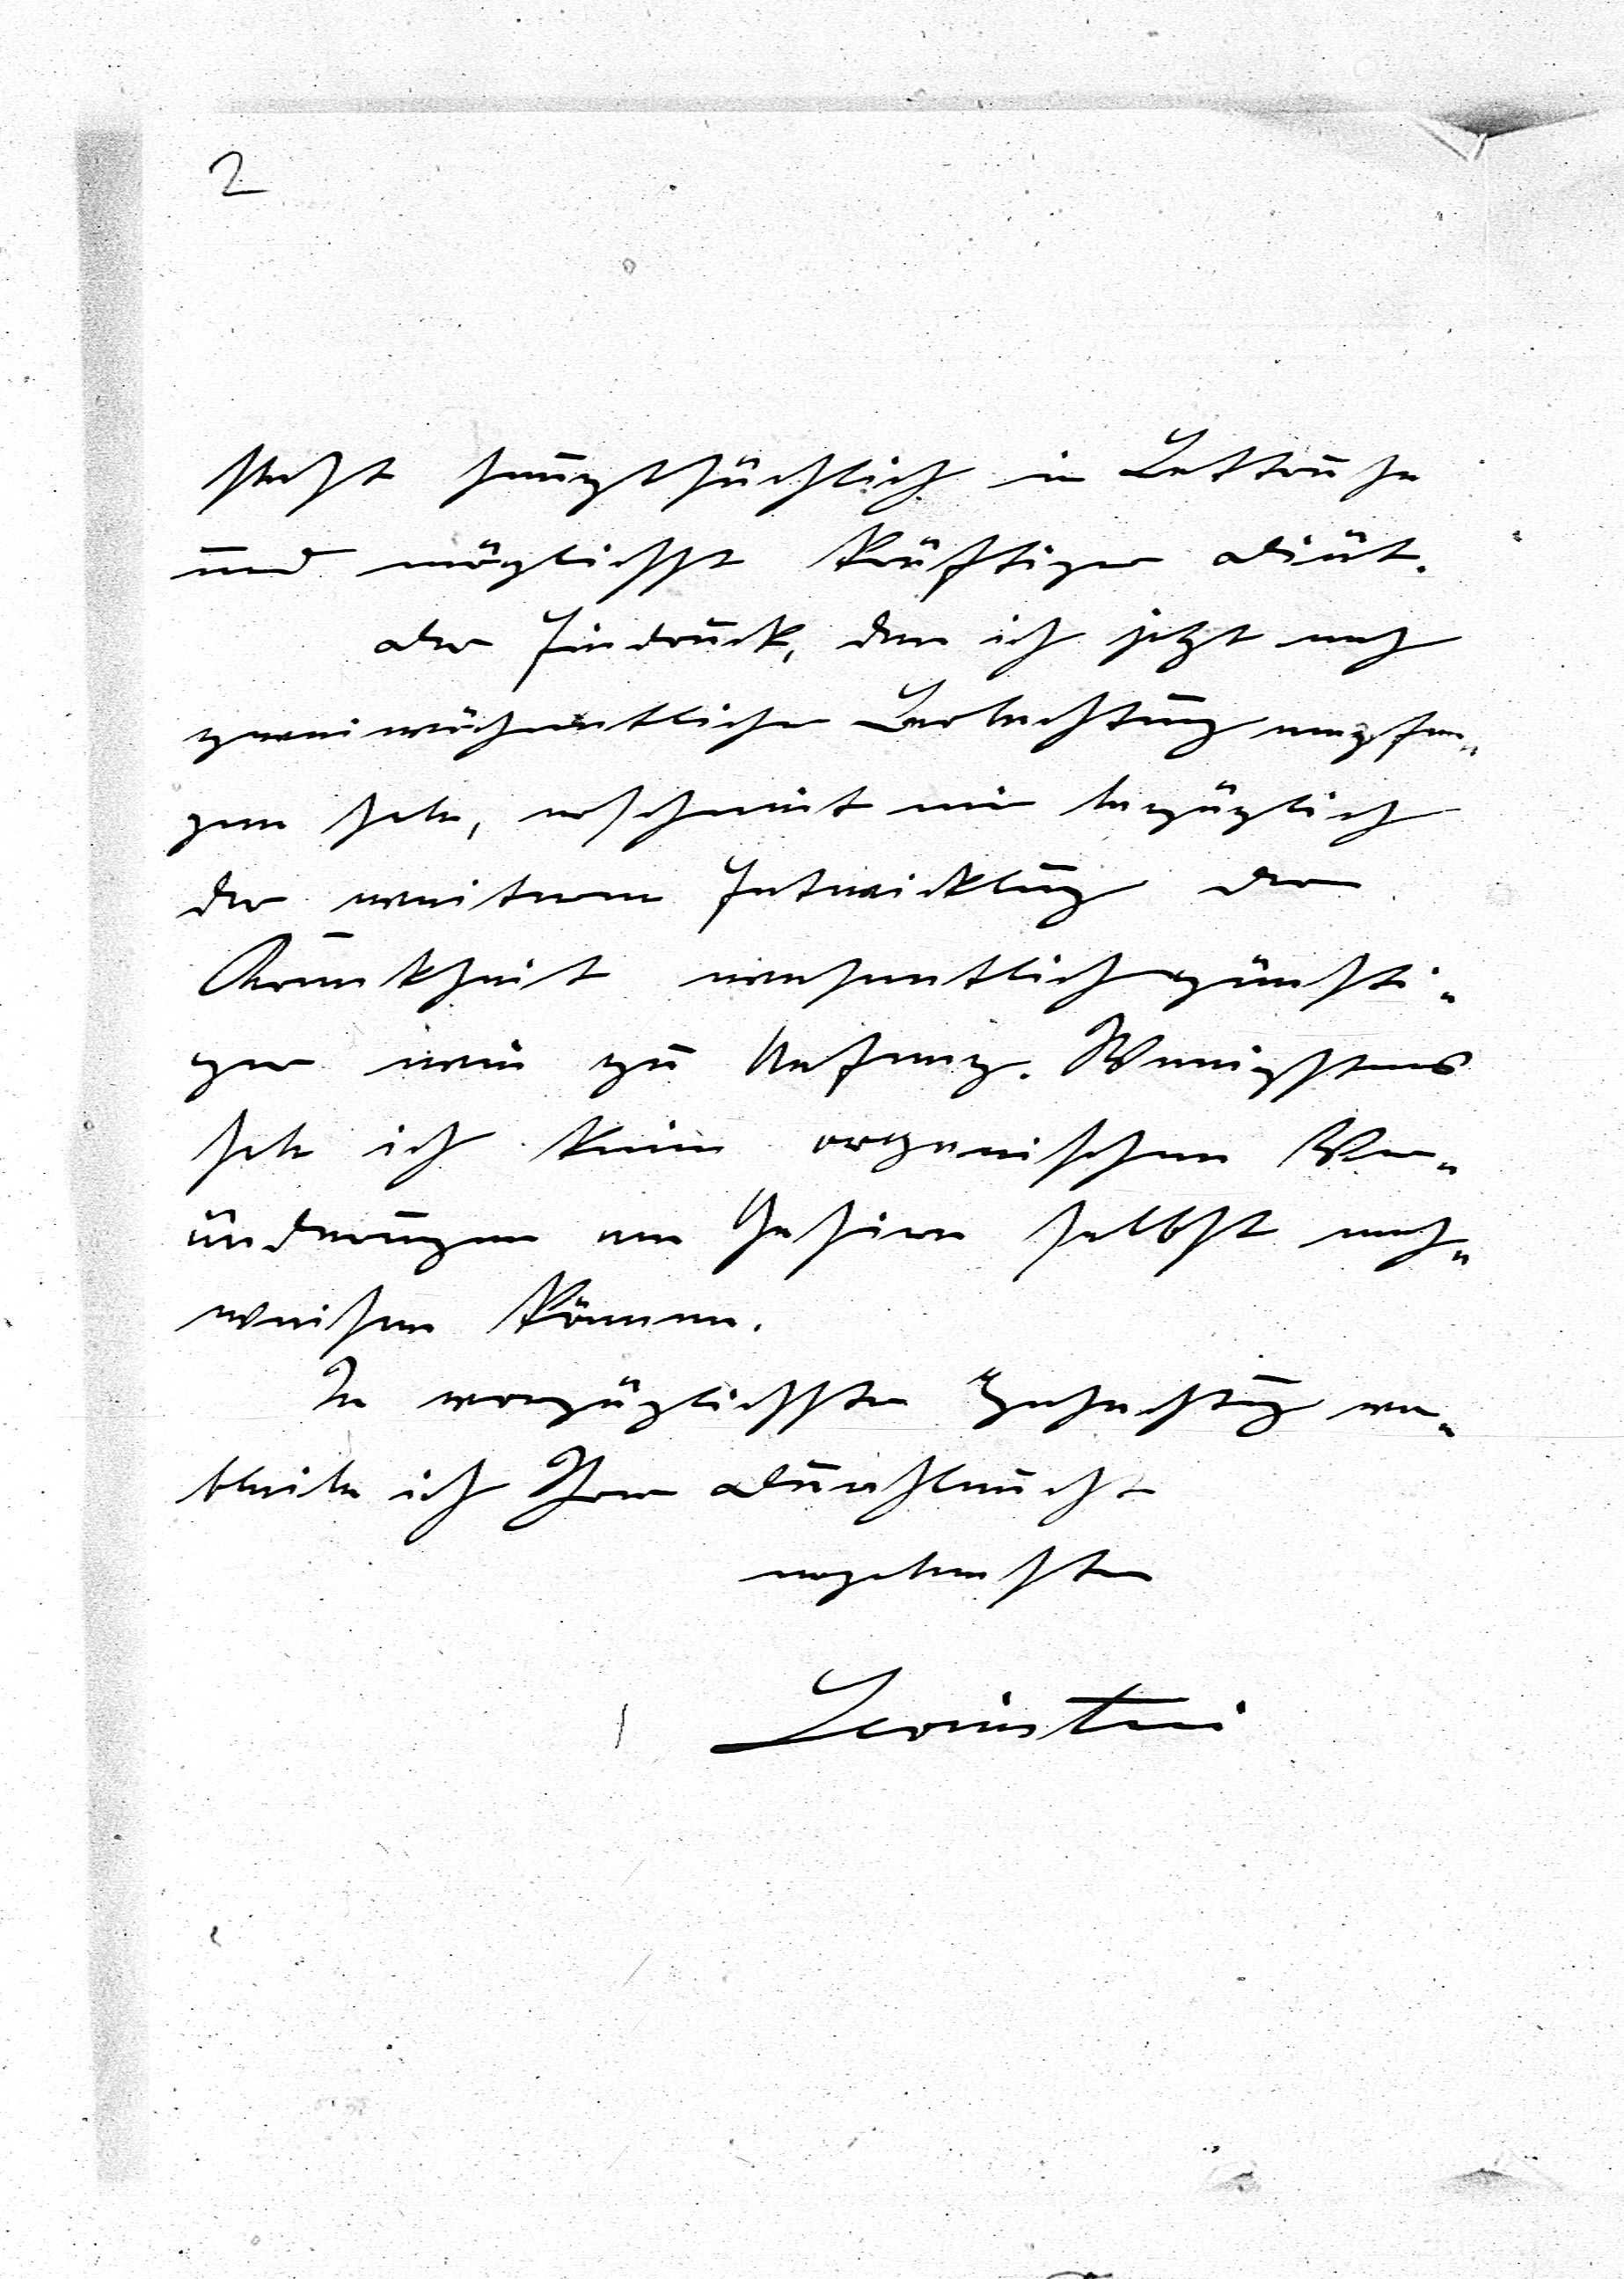 2
steht hauptsächlich in Bettruhe
und möglichst kräftiger Diät.
Der Eindruck, den ich jetzt nach
zweiwöchentlicher Beobachtung empfan-
gen habe, erscheint mir bezüglich
der weiteren Entwicklung der
Krankheit wesentlich günsti-
ger wie zu Anfang. Wenigstens
habe ich keine organischen Ver-
änderungen am Gehirn selbst nach-
weisen können.
In vorzüglichster Hochachtung ver-
bleibe ich Ihrer Durchlaucht
ergebenster